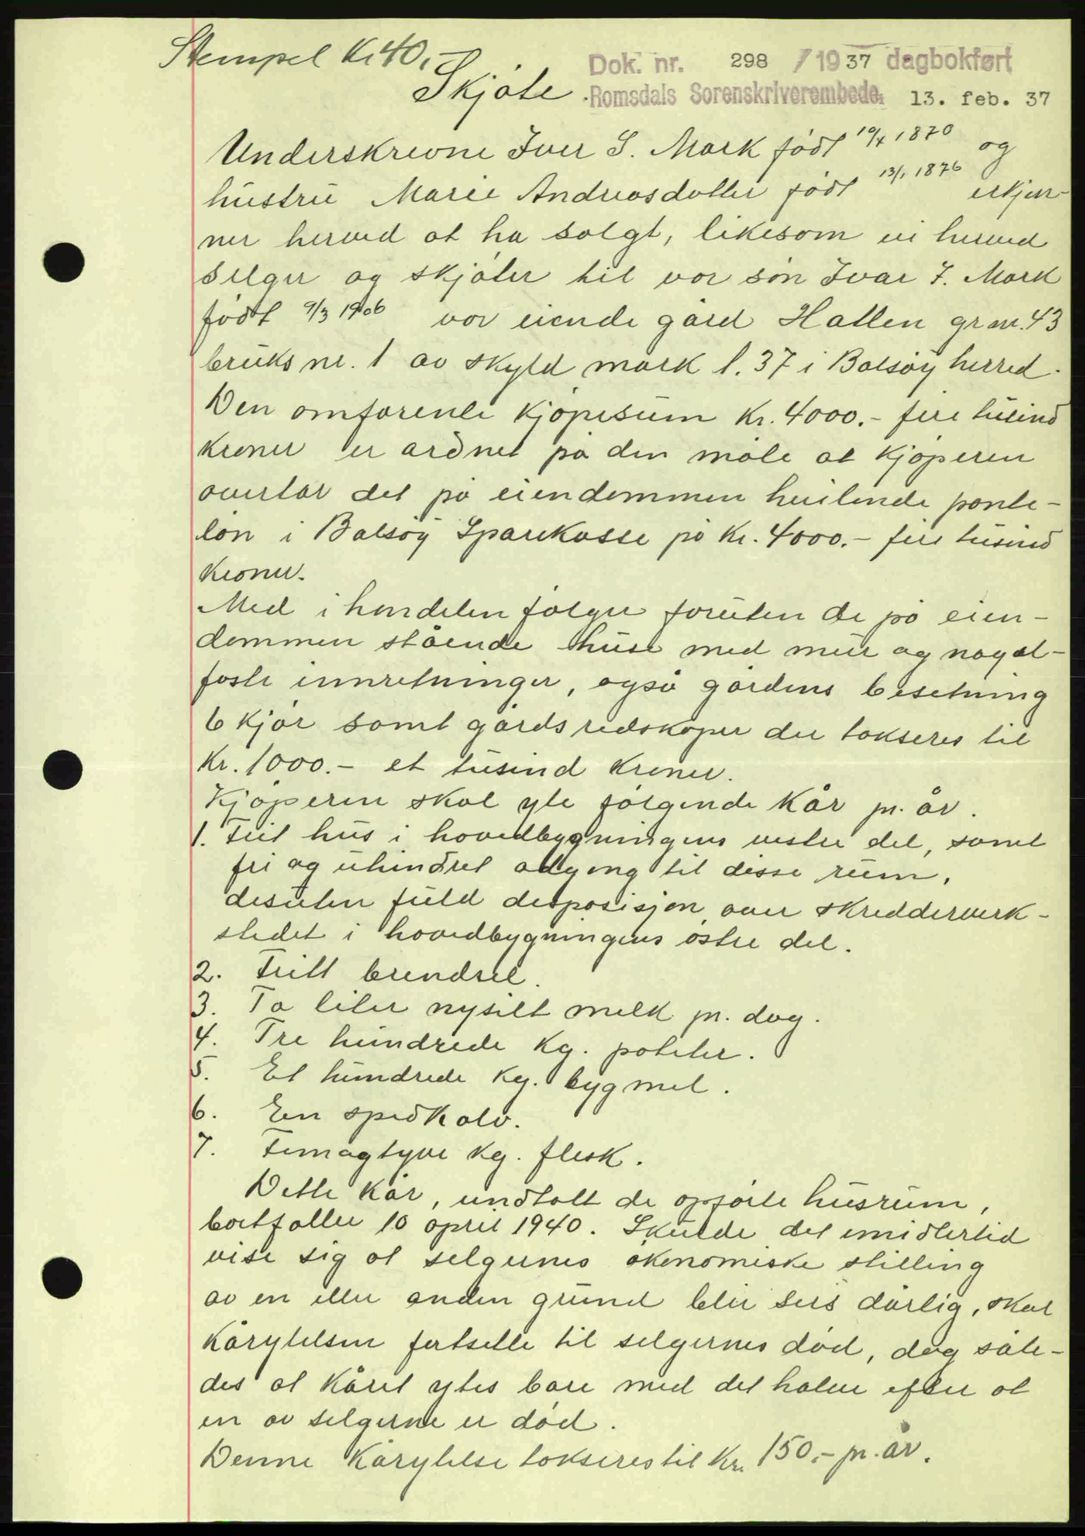 Stempel Kr 40,-
Dok. nr. 298 /1937 dagbokført
Skjøte
Romsdals Sorenskriverembede, 13. feb. 37
Underskrevne Iver S. Mork født 10/4 1870 og
hustru Marie Andreasdatter født 13/1 1876 erkjen-
ner herved at ha solgt, likesom vi herved
selger og skjøter til vor søn Ivar I. Mork
født 9/3 1906 vor eiende gård Hatlen gr.nr. 43
bruks nr. 1 av skyld mark 1.37 i Bolsøy herred.
Den omforente kjøpesum kr. 4000.- fire tusind
kroner er ordnet på den måte at kjøperen
overtar det på eiendommen hvilende pante-
lån i Bolsøy Sparekasse på kr. 4000.- fire tusind
kroner.
Med i handelen følger foruten de på eien-
dommen stående huse med mur og nagel-
faste innretninger, også gårdens besetning
6 kjør samt gårdsredskaper der takseres til
kr. 1000.- et tusind kroner.
Kjøperen skal yte følgende kår pr. år.
1. Frit hus i hovedbygningens vestre del, samt
fri og uhindret adgang til disse rum,
desuten fuld desposisjon over skredderverk-
stedet i hovedbygningens østre del.
2. Fritt brendsel.
3. To liter nysilt melk pr. dag.
4. Tre hundrede kg. poteter.
5. Et hundrede kg. bygmel.
6. En spedkalv.
7. Femogtyve kg. flesk.
Dette kår, undtatt de opførte husrum,
bortfaller 10 april 1940. Skulde det imidlertid
vise sig at selgernes økonomiske stilling
av en eller anden grund blir sers dårlig, skal
kårytelsen fortsette til selgernes død, dog såle-
des at kåret ytes bare med det halve efter at
en av selgerne er død.
Denne kårytelse takseres til kr. 150.- pr. år.